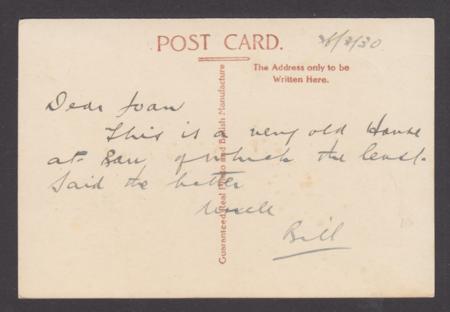 POST CARD.
The Address only to be
Written Here.
Guaranteed Real Photo and British Manufacture
Dear Joan
This is a very old House
at of which the least
said the better
Uncle
Bill